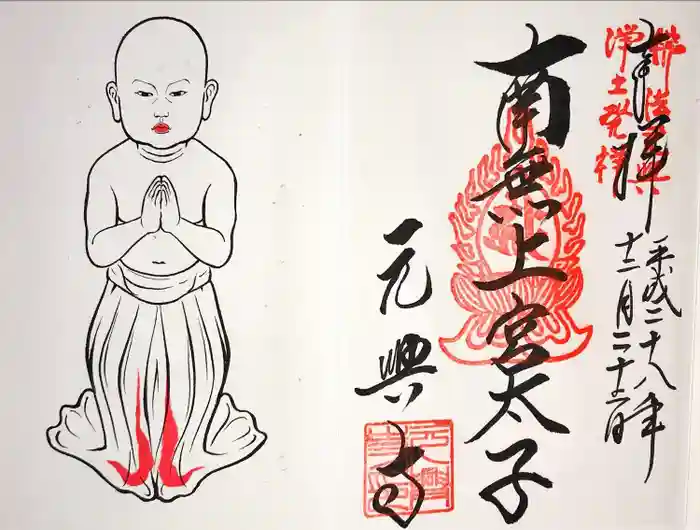 奉拝
浄土発祥
平成二十八年
十二月二十
南無上宮太子
元興寺